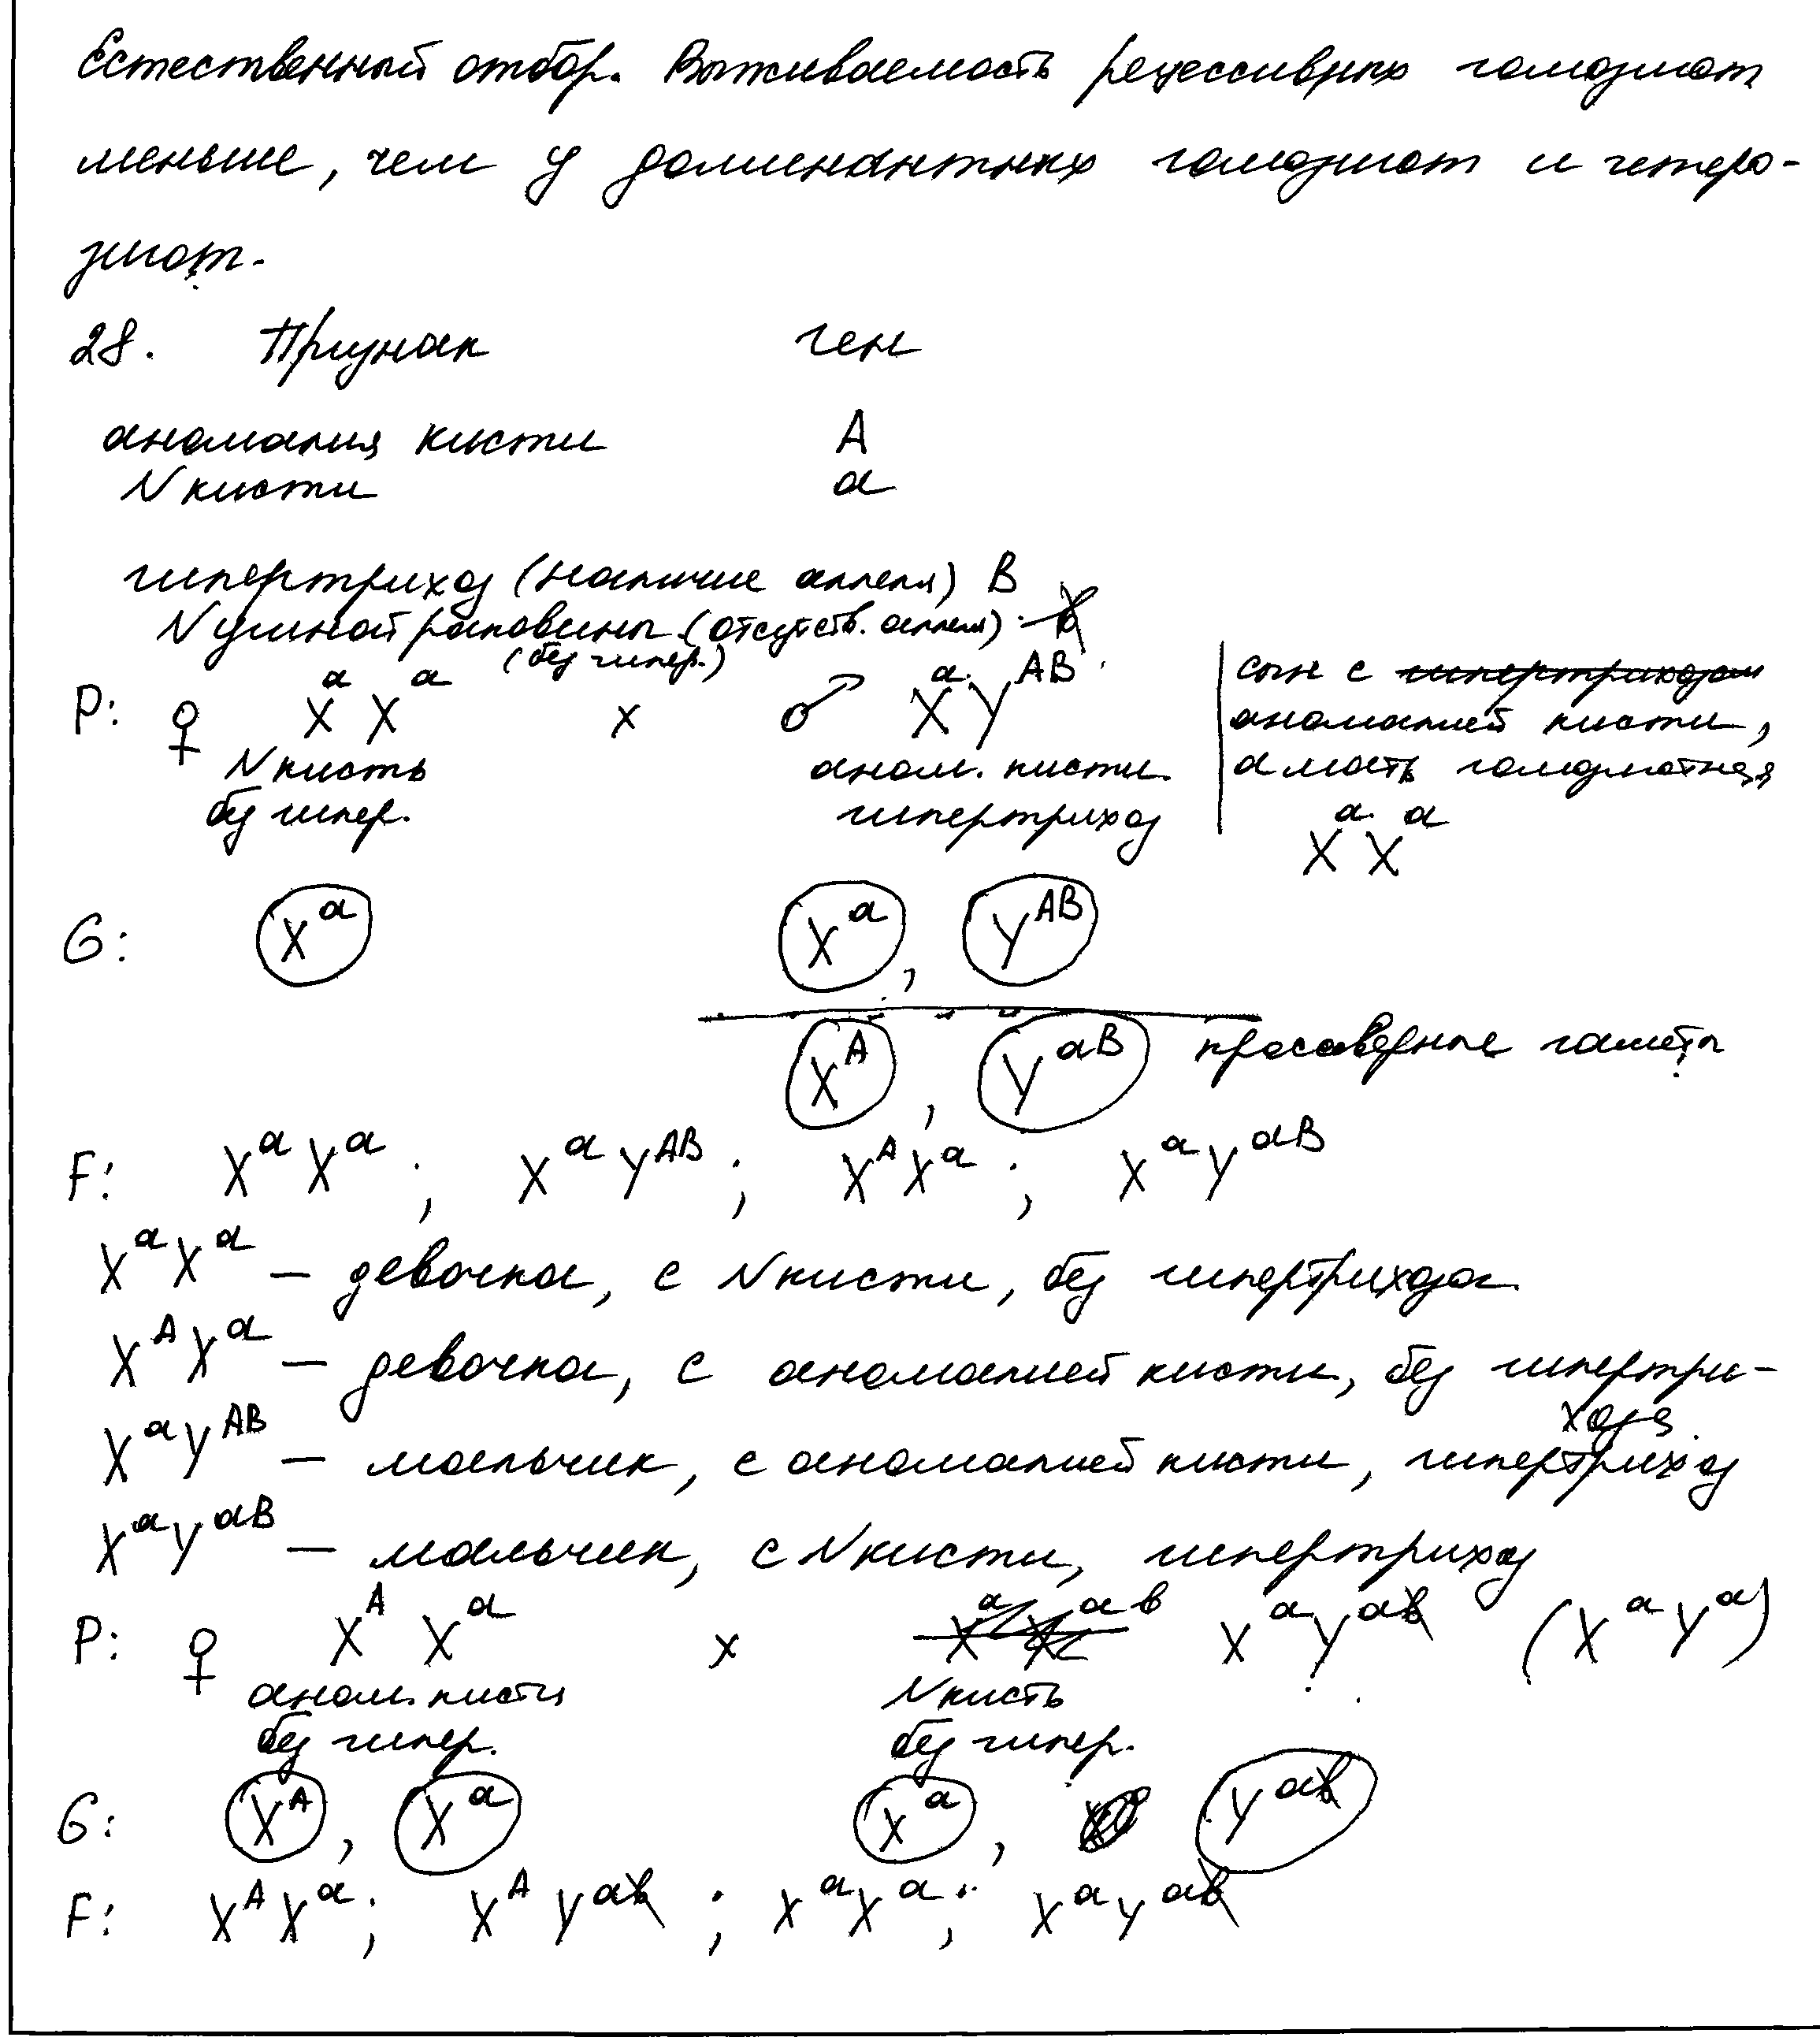 Естественный отбор. Выживаемость рецессивных гомозигот
меньше, чем у доминантных гомозигот и гетеро-
зигот.
28. Признак ген
аномалия кисти A
N кисти a
гипертрихоз (наличие аллеля) B
N ушной раковины (отсутств. аллеля)
(без гипер.)
P: ♀ XᵃXᵃ x ♂ XᵃYᴬᴮ
N кисть аном. кисти
без гипер. гипертрихоз
сын с гипертрихозом
аномалией кисти,
а мать гомозиготная
XᵃXᵃ
G: Xᵃ Xᵃ, Yᴬᴮ
Xᴬ, Yᵃᴮ кроссоверные гаметы
F: XᵃXᵃ; XᵃYᴬᴮ; XᴬXᵃ; XᵃYᵃᴮ
XᵃXᵃ – девочка, с N кисти, без гипертрихоза
XᴬXᵃ – девочка, с аномалией кисти, без гипертри-
хоза
XᵃYᴬᴮ – мальчик, с аномалией кисти, гипертрихоз
XᵃYᵃᴮ – мальчик, с N кисти, гипертрихоз
P: ♀ XᴬXᵃ x XᵃYᵃ (XᵃYᵃ)
аном. кисти N кисть
без гипер. без гипер.
G: Xᴬ, Xᵃ Xᵃ, Yᵃ
F: XᴬXᵃ; XᴬYᵃ; XᵃXᵃ; XᵃYᵃ